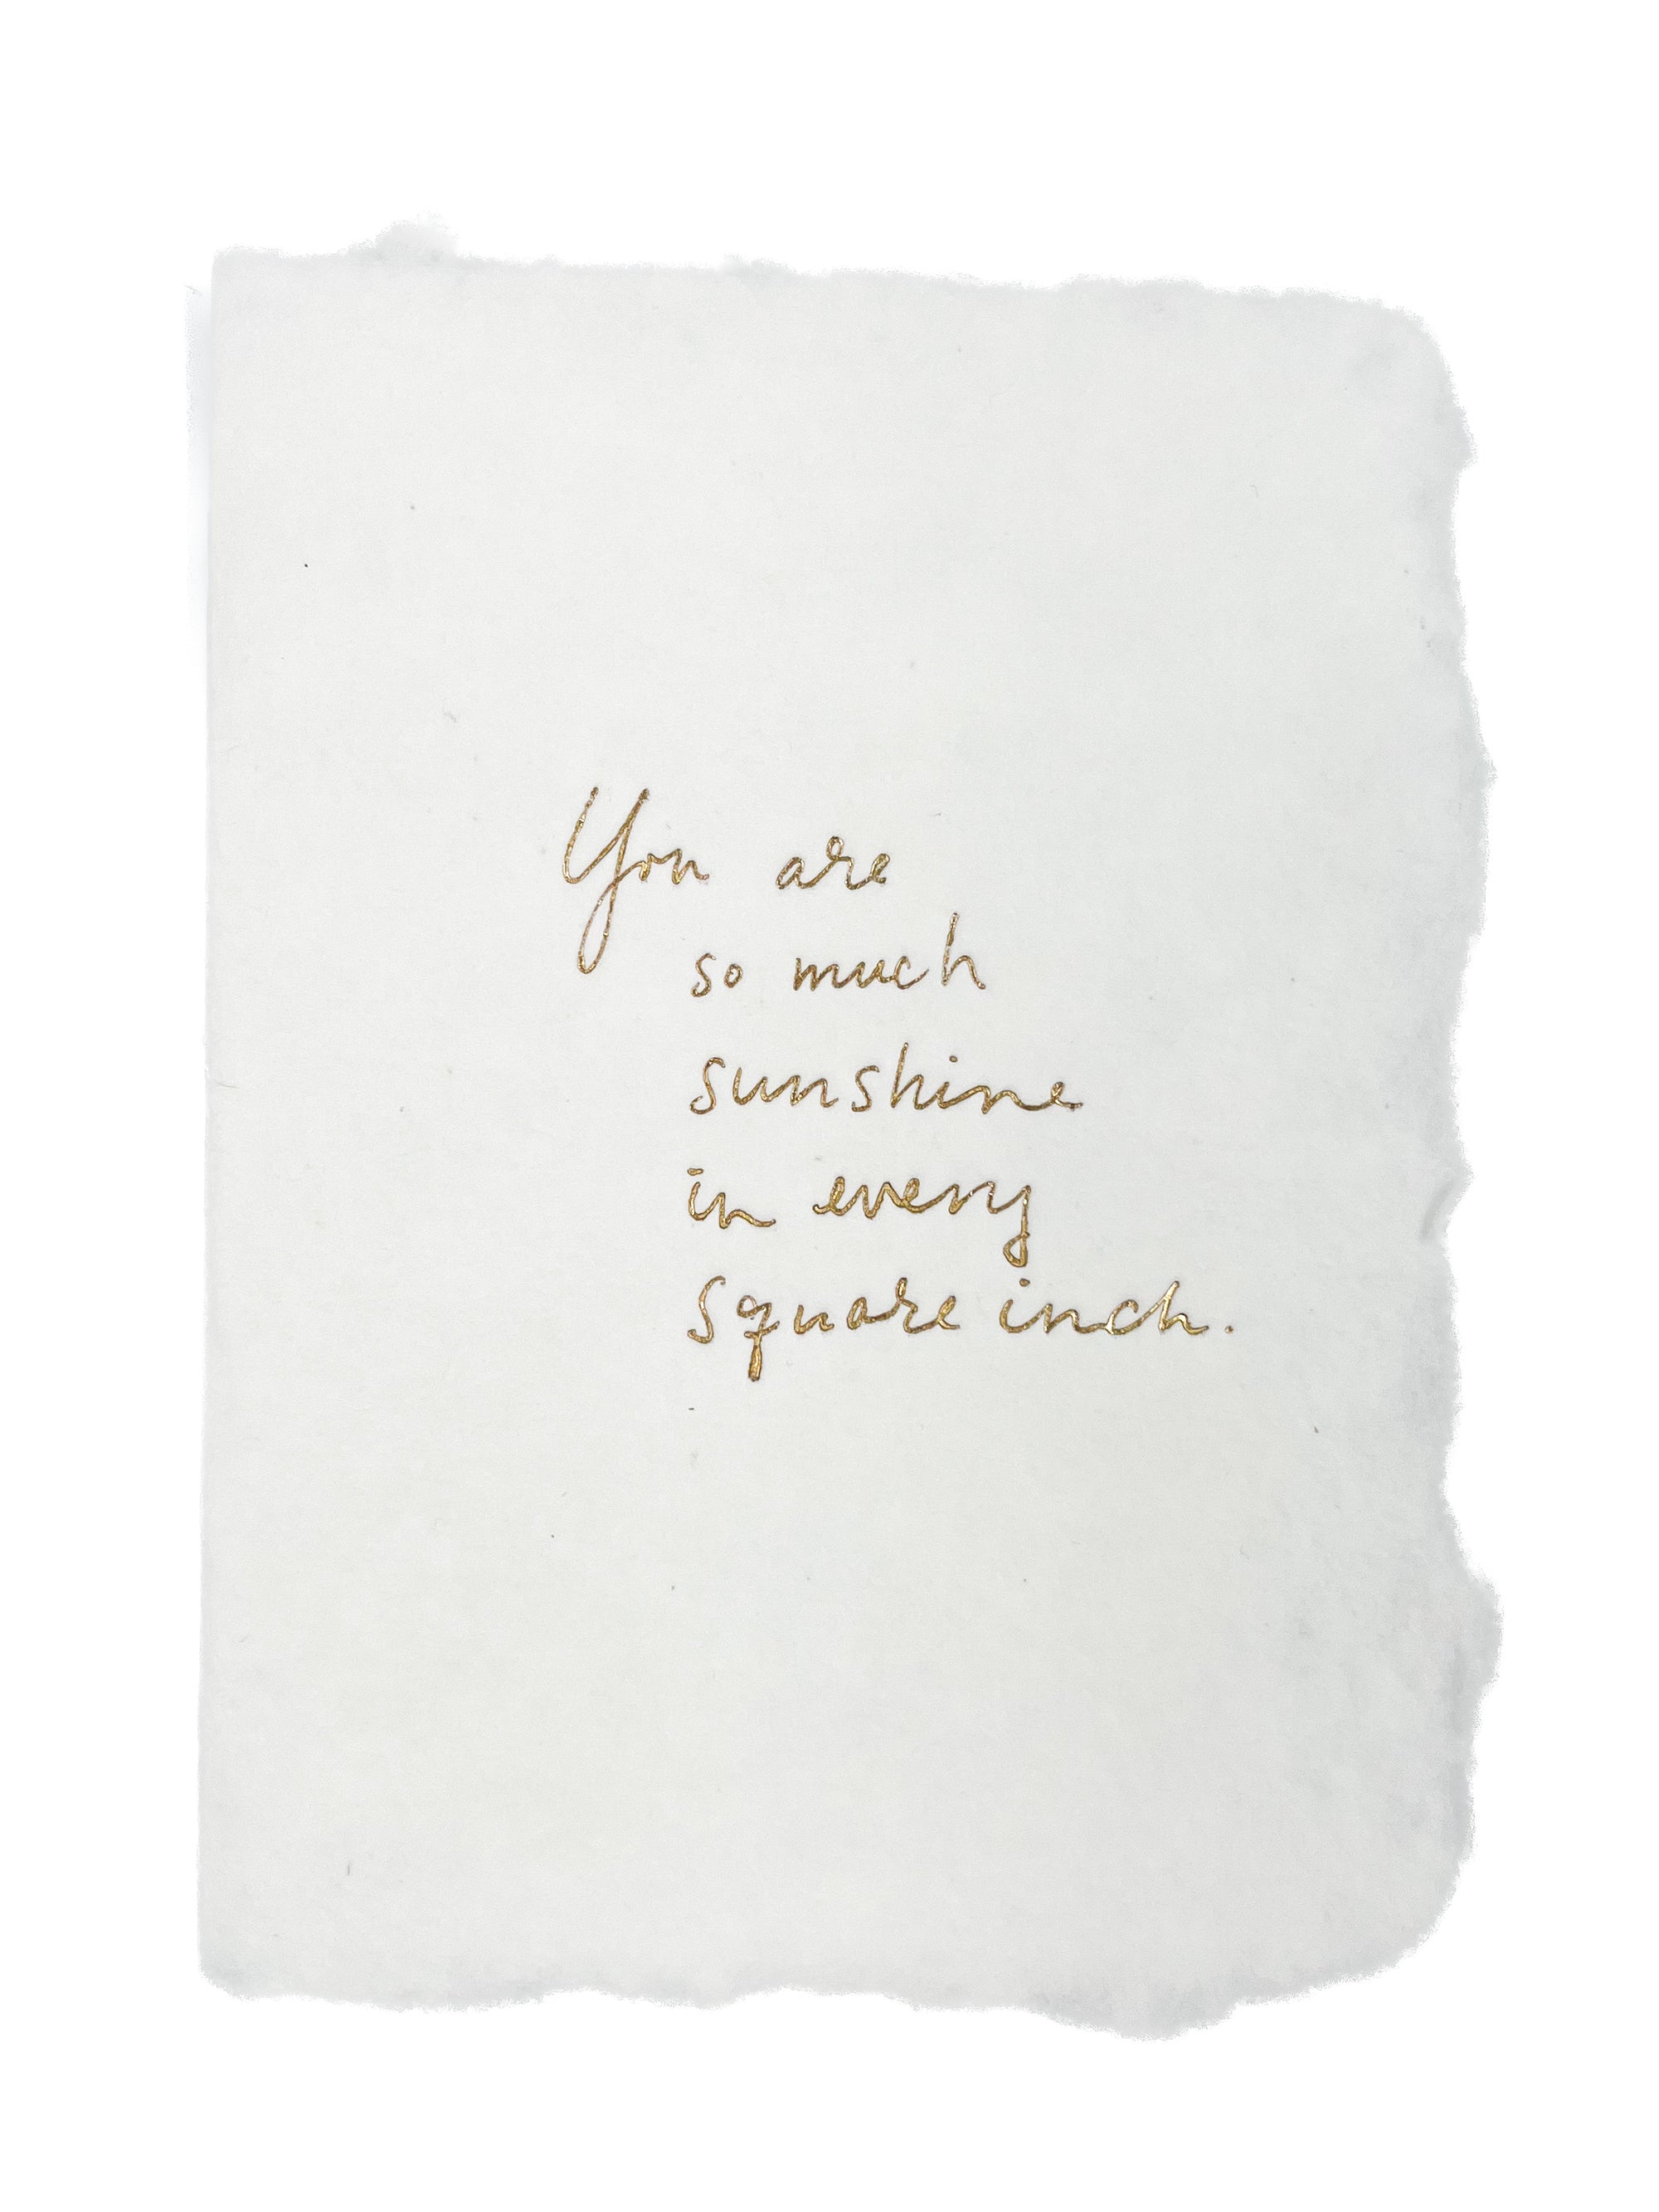 You are
so much
sunshine
in every
square inch.